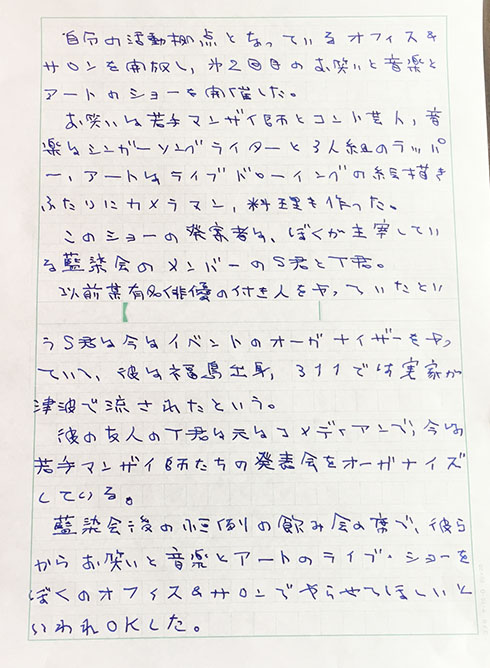 自分の活動拠点となっているオフィス&
サロンを開放し、第2回目のお笑いと音楽と
アートのショーを開催した。
お笑いは若手マンザイ師とコント芸人、音
楽はシンガーソングライターと3人組のラッパ
ー、アートはライブドローイングの絵描き
ふたりにカメラマン、料理も作った。
このショーの発案者は、ぼくが主宰してい
る藍染会のメンバーのS君とT君。
以前某有名俳優の付き人をやっていたとい
うS君は今はイベントのオーガナイザーをやっ
ていて、彼は福島出身、311では実家が
津波で流されたという。
彼の友人のT君は元はコメディアンで、今は
若手マンザイ師たちの発表会をオーガナイズ
している。
藍染会後の恒例の飲み会の席で、彼ら
からお笑いと音楽とアートのライブ・ショーを
ぼくのオフィス&サロンでやらせてほしいと
いわれOKした。